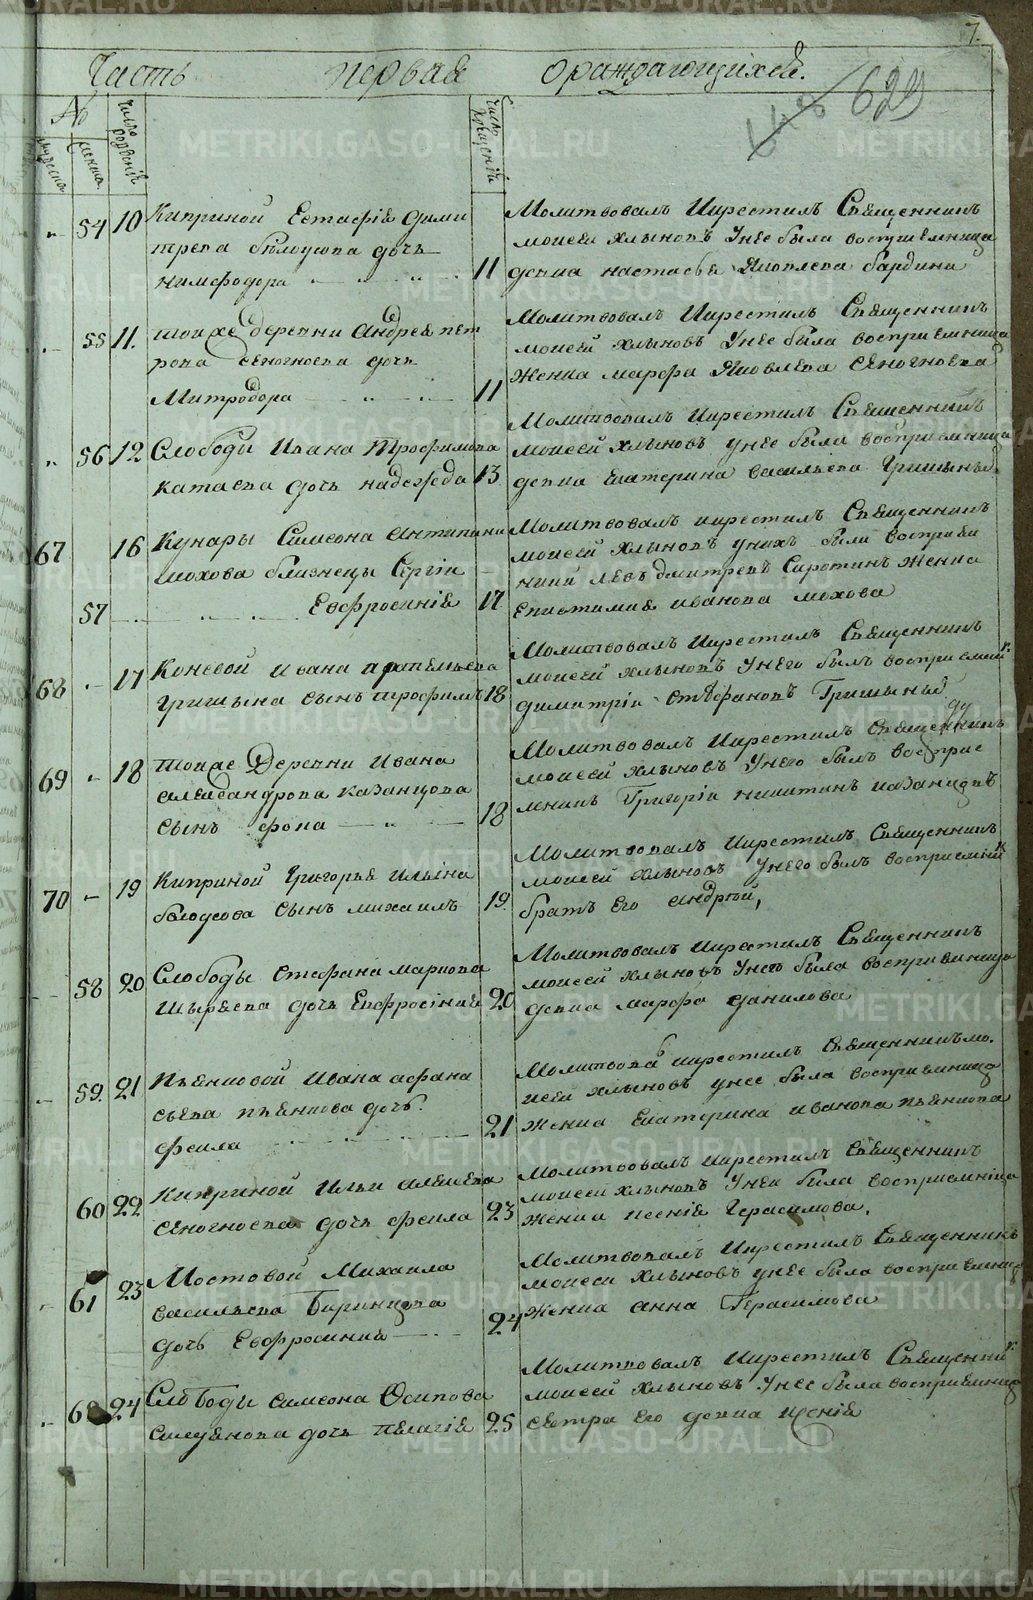 7.
Часть первая ораждающихся.
648 629
№
мужеска
женска
число рождения
число крещения
54 10 Киприной Естафiя дими
трева белоусова дочь
нимфодора 11
Молитвовалъ и крестилъ Священникъ
моисей хлыновъ у нее была восприемница
девка настасья яковлева бардина
55 11. тойже деревни Андрея пет
рова сеногноева дочь
Митродора 11
Молитвовалъ и крестилъ Священникъ
моисей хлыновъ у нее была восприемница
женка марфа яковлева сеногноева
56 12 Слободы Ивана Трофимова
катаева дочь надежда 13
Молитвовалъ и крестилъ Священникъ
моисей хлыновъ у нее была восприемница
девка екатерина васильева Гришиныхъ
67 16 Кунары Симеона антипина
мохова близнецы Сергiи
57 Евфросинiя 17
Молитвовалъ и крестилъ Священникъ
моисей хлыновъ у нихъ были восприем
ники левъ дмитревъ Сиротинъ женка
епистимия иванова мохова
68 17 Коневой ивана
гришина сынъ трофимъ 18
Молитвовалъ и крестилъ Священникъ
моисей хлыновъ у него былъ восприемник
димитрiи стефановъ Гришиныхъ
69 18 тойже Деревни Ивана
александрова казанцова
сынъ фока 18
Молитвовалъ и крестилъ священникъ
моисей хлыновъ у него былъ восприе
мникъ Григорiи никитинъ казанцовъ
70 19 Киприной Григорья ильина
белоусова сынъ михаилъ 19.
Молитвовалъ и крестилъ Священникъ
моисей хлыновъ у него былъ восприемник
братъ его андрей,
58 20 Слободы стефана маркова
ширяева дочь Евфросiния 20
Молитвовалъ и крестилъ Священникъ
моисей хлыновъ у него была восприемница
девка марфа данилова
59. 21 пьянковой ивана афана
сьева пьянкова дочь.
фекла 21
Молитвовалъ и крестилъ священникъ мо.
исей хлыновъ у нее была восприемница
женка екатерина иванова пьянкова
60 22 киприной ильи алексева
сеногноева дочь фекла 23
Молитвовалъ и крестилъ священникъ
моисей хлыновъ у неи была восприемнiца
женка ксенiя Герасимова,
61 23 Мостовой Михаила
васильева
дочь Евфросиния 24
Молитвовалъ и крестилъ Священникъ
моисей хлыновъ у нее была восприемница
женка анна Герасимова
62 24 Слободы симеона Осипова
дочь пелагiя 25
Молитвовалъ и крестилъ Священник
моисей хлыновъ у нее была восприемница
сестра его девка ксенiя